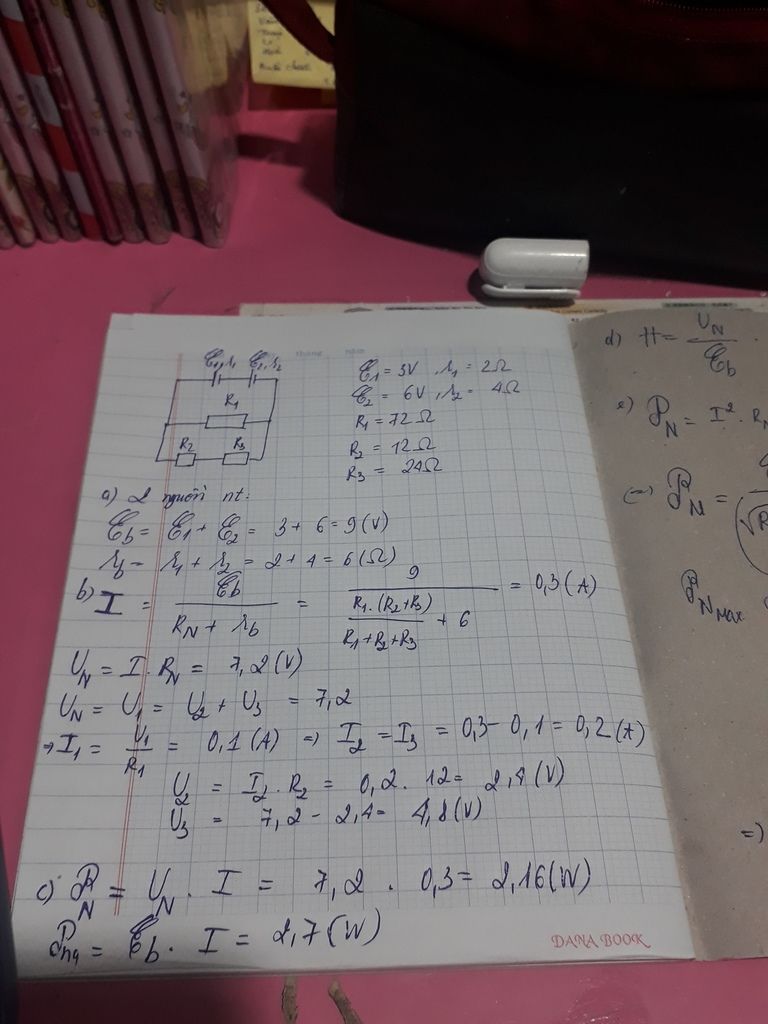 E₁, r₁ E₂, r₂
R₁
R₂ R₃
E₁ = 3V, r₁ = 2Ω
E₂ = 6V, r₂ = 4Ω
R₁ = 72Ω
R₂ = 12Ω
R₃ = 24Ω
a) 2 nguồn nt:
E_b = E₁ + E₂ = 3 + 6 = 9 (V)
r_b = r₁ + r₂ = 2 + 4 = 6 (Ω)
b) I = E_b / (R_N + r_b) = 9 / (R₁.(R₂+R₃) / (R₁+R₂+R₃) + 6) = 0,3 (A)
U_N = I.R_N = 7,2 (V)
U_N = U₁ = U₂ + U₃ = 7,2
→ I₁ = U₁/R₁ = 0,1 (A) => I₂ = I₃ = 0,3 - 0,1 = 0,2 (A)
U₂ = I₂.R₂ = 0,2.12 = 2,4 (V)
U₃ = 7,2 - 2,4 = 4,8 (V)
c) P_N = U_N.I = 7,2.0,3 = 2,16 (W)
P_ng = E_b.I = 2,7 (W)
DANA BOOK
d) H = U_N / E_b
e) P_N = I².R
P_N =
P_N max
=>